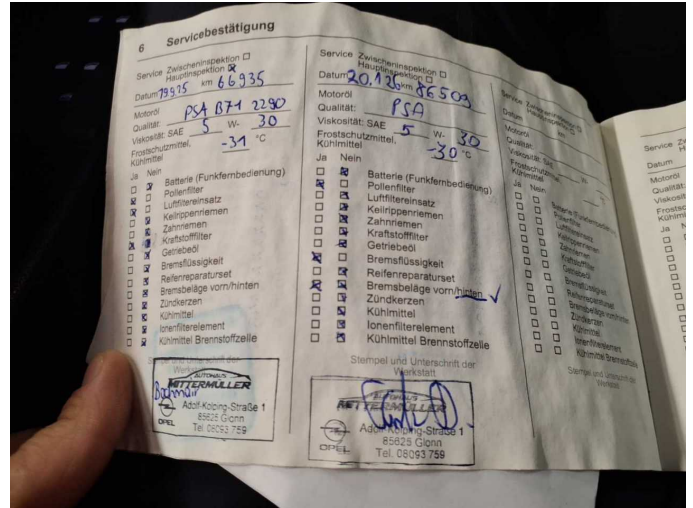 6 Servicebestätigung
Service Zwischeninspektion
Hauptinspektion
Datum 19.9.25 km 66935
Motoröl
Qualität: PSA B71 2290
Viskosität: SAE 5 W- 30
Frostschutzmittel, -31 °C
Kühlmittel
Ja Nein
Batterie (Funkfernbedienung)
Pollenfilter
Luftfiltereinsatz
Keilrippenriemen
Zahnriemen
Kraftstofffilter
Getriebeöl
Bremsflüssigkeit
Reifenreparaturset
Bremsbeläge vorn/hinten
Zündkerzen
Kühlmittel
Ionenfilterelement
Kühlmittel Brennstoffzelle
Stempel und Unterschrift der
Werkstatt
AUTOHAUS
MITTERMÜLLER
Adolf-Kolping-Straße 1
85625 Glonn
OPEL Tel. 08093 759
Service Zwischeninspektion
Hauptinspektion
Datum 20.1.26 km 86509
Motoröl
Qualität: PSA
Viskosität: SAE 5 W- 30
Frostschutzmittel, -30 °C
Kühlmittel
Ja Nein
Batterie (Funkfernbedienung)
Pollenfilter
Luftfiltereinsatz
Keilrippenriemen
Zahnriemen
Kraftstofffilter
Getriebeöl
Bremsflüssigkeit
Reifenreparaturset
Bremsbeläge vorn/hinten ✓
Zündkerzen
Kühlmittel
Ionenfilterelement
Kühlmittel Brennstoffzelle
Stempel und Unterschrift der
Werkstatt
AUTOHAUS
MITTERMÜLLER
Adolf-Kolping-Straße 1
85625 Glonn
OPEL Tel. 08093 759
Service Zwischeninspektion
Hauptinspektion
Datum km
Motoröl
Qualität:
Viskosität: SAE W-
Frostschutzmittel, °C
Kühlmittel
Ja Nein
Batterie (Funkfernbedienung)
Pollenfilter
Luftfiltereinsatz
Keilrippenriemen
Zahnriemen
Kraftstofffilter
Getriebeöl
Bremsflüssigkeit
Reifenreparaturset
Bremsbeläge vorn/hinten
Zündkerzen
Kühlmittel
Ionenfilterelement
Kühlmittel Brennstoffzelle
Stempel und Unterschrift der
Werkstatt
Service
Datum
Motoröl
Qualität:
Ja